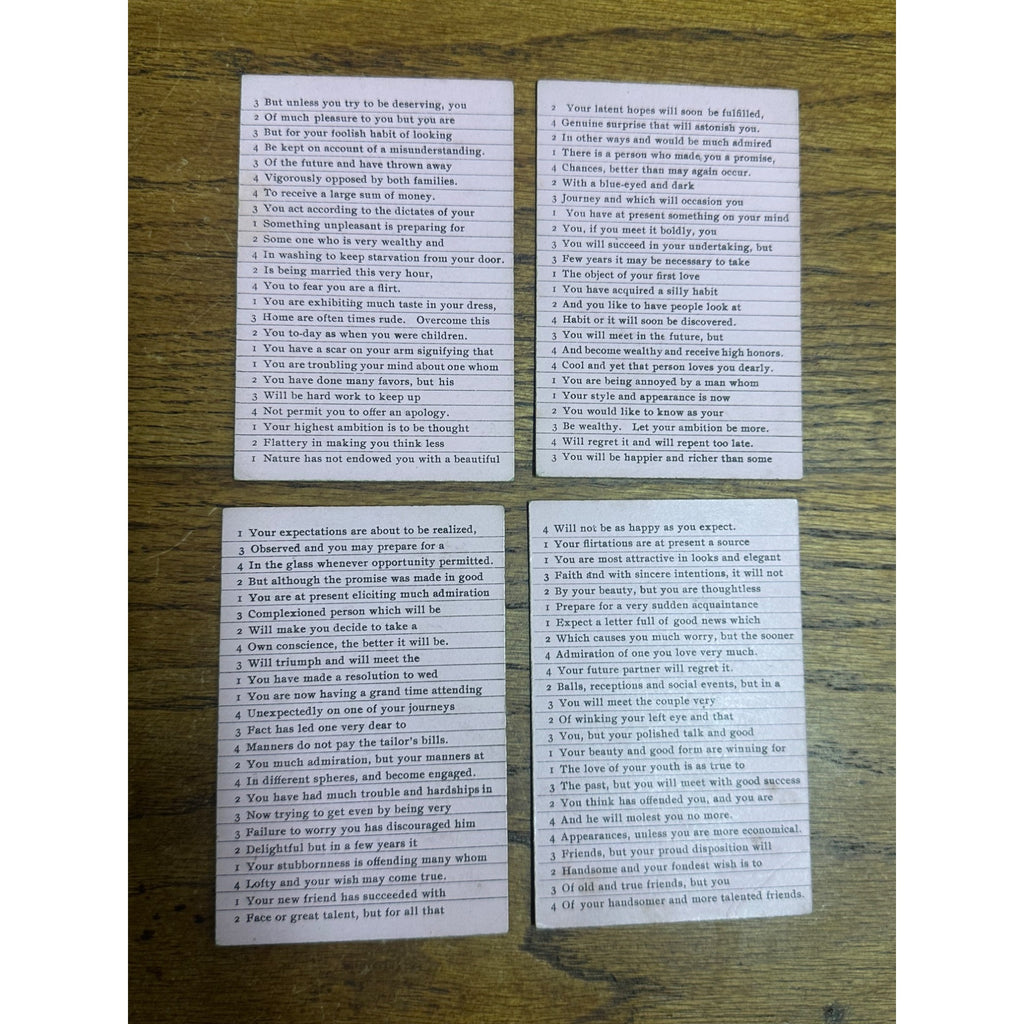 3 But unless you try to be deserving, you
2 Of much pleasure to you but you are
3 But for your foolish habit of looking
4 Be kept on account of a misunderstanding.
3 Of the future and have thrown away
4 Vigorously opposed by both families.
4 To receive a large sum of money.
3 You act according to the dictates of your
1 Something unpleasant is preparing for
2 Some one who is very wealthy and
4 In washing to keep starvation from your door.
2 Is being married this very hour,
4 You to fear you are a flirt.
1 You are exhibiting much taste in your dress,
3 Home are often times rude. Overcome this
2 You to-day as when you were children.
1 You have a scar on your arm signifying that
1 You are troubling your mind about one whom
2 You have done many favors, but his
3 Will be hard work to keep up
4 Not permit you to offer an apology.
1 Your highest ambition is to be thought
2 Flattery in making you think less
1 Nature has not endowed you with a beautiful
2 Your latent hopes will soon be fulfilled,
4 Genuine surprise that will astonish you.
2 In other ways and would be much admired
1 There is a person who made you a promise,
4 Chances, better than may again occur.
2 With a blue-eyed and dark
3 Journey and which will occasion you
1 You have at present something on your mind
2 You, if you meet it boldly, you
3 You will succeed in your undertaking, but
3 Few years it may be necessary to take
1 The object of your first love
1 You have acquired a silly habit
2 And you like to have people look at
4 Habit or it will soon be discovered.
3 You will meet in the future, but
4 And become wealthy and receive high honors.
4 Cool and yet that person loves you dearly.
1 You are being annoyed by a man whom
1 Your style and appearance is now
2 You would like to know as your
3 Be wealthy. Let your ambition be more.
4 Will regret it and will repent too late.
3 You will be happier and richer than some
1 Your expectations are about to be realized,
3 Observed and you may prepare for a
4 In the glass whenever opportunity permitted.
2 But although the promise was made in good
1 You are at present eliciting much admiration
3 Complexioned person which will be
2 Will make you decide to take a
4 Own conscience, the better it will be.
3 Will triumph and will meet the
1 You have made a resolution to wed
1 You are now having a grand time attending
4 Unexpectedly on one of your journeys
3 Fact has led one very dear to
4 Manners do not pay the tailor's bills.
2 You much admiration, but your manners at
4 In different spheres, and become engaged.
2 You have had much trouble and hardships in
3 Now trying to get even by being very
3 Failure to worry you has discouraged him
2 Delightful but in a few years it
1 Your stubbornness is offending many whom
4 Lofty and your wish may come true.
1 Your new friend has succeeded with
2 Face or great talent, but for all that
4 Will not be as happy as you expect.
1 Your flirtations are at present a source
1 You are most attractive in looks and elegant
3 Faith and with sincere intentions, it will not
2 By your beauty, but you are thoughtless
1 Prepare for a very sudden acquaintance
1 Expect a letter full of good news which
2 Which causes you much worry, but the sooner
4 Admiration of one you love very much.
4 Your future partner will regret it.
2 Balls, receptions and social events, but in a
3 You will meet the couple very
2 Of winking your left eye and that
3 You, but your polished talk and good
1 Your beauty and good form are winning for
1 The love of your youth is as true to
3 The past, but you will meet with good success
2 You think has offended you, and you are
4 And he will molest you no more.
4 Appearances, unless you are more economical.
3 Friends, but your proud disposition will
2 Handsome and your fondest wish is to
3 Of old and true friends, but you
4 Of your handsomer and more talented friends.